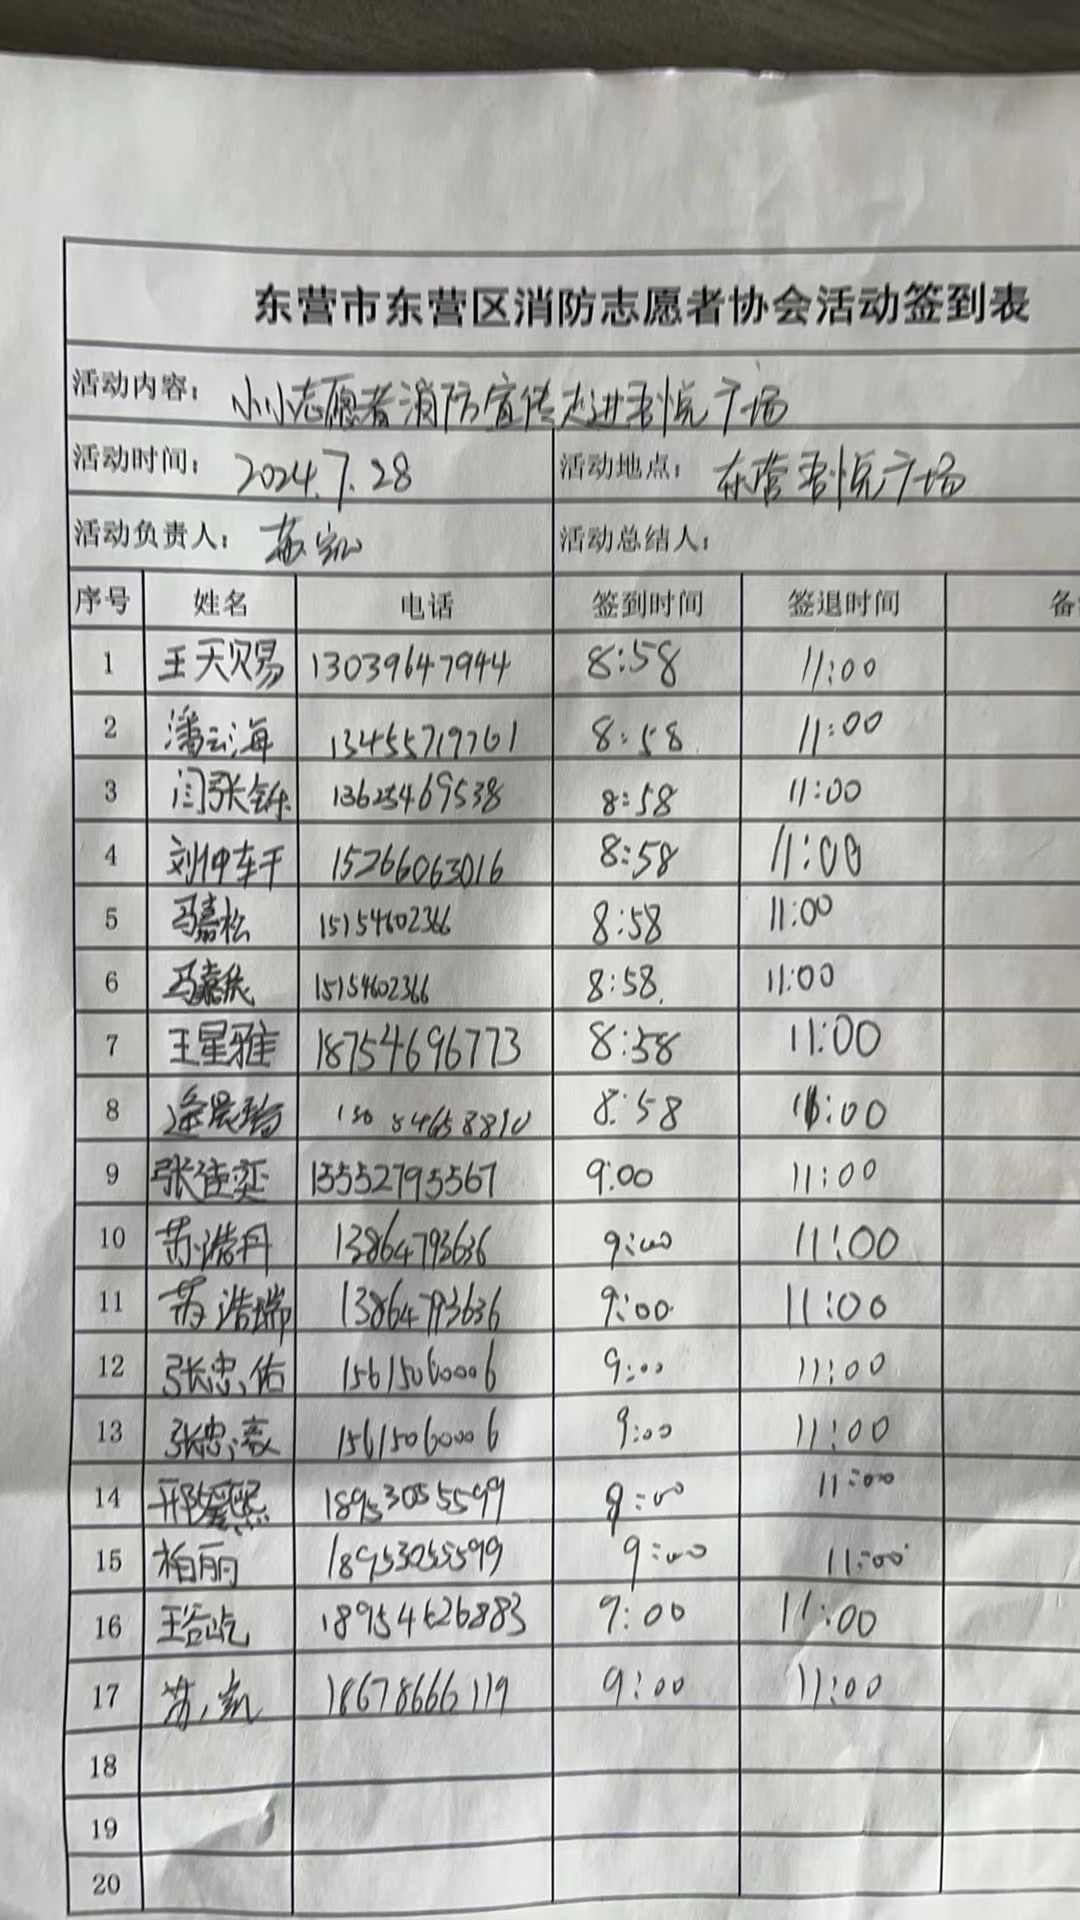 东营市东营区消防志愿者协会活动签到表
活动内容：小小志愿者消防宣传走进吾悦广场
活动时间：2024.7.28 活动地点：东营吾悦广场
活动负责人： 活动总结人：
序号 姓名 电话 签到时间 签退时间
1 王天赐 13039647944 8:58 11:00
2 潘云海 13455719701 8:58 11:00
3 闫张铄 13625469538 8:58 11:00
4 刘仲车干 15266063016 8:58 11:00
5 马嘉松 15154602366 8:58 11:00
6 马嘉 15154602366 8:58 11:00
7 王星雅 18754696773 8:58 11:00
8 8:58 11:00
9 张佳奕 13552795567 9:00 11:00
10 苏浩丹 13864793636 9:00 11:00
11 苏浩瑞 13864793636 9:00 11:00
12 张忠佑 15615060006 9:00 11:00
13 张忠 15615060006 9:00 11:00
14 18953055599 9:00 11:00
15 柏丽 18953055599 9:00 11:00
16 王谷屹 18954626883 9:00 11:00
17 苏凯 18678666119 9:00 11:00
18
19
20